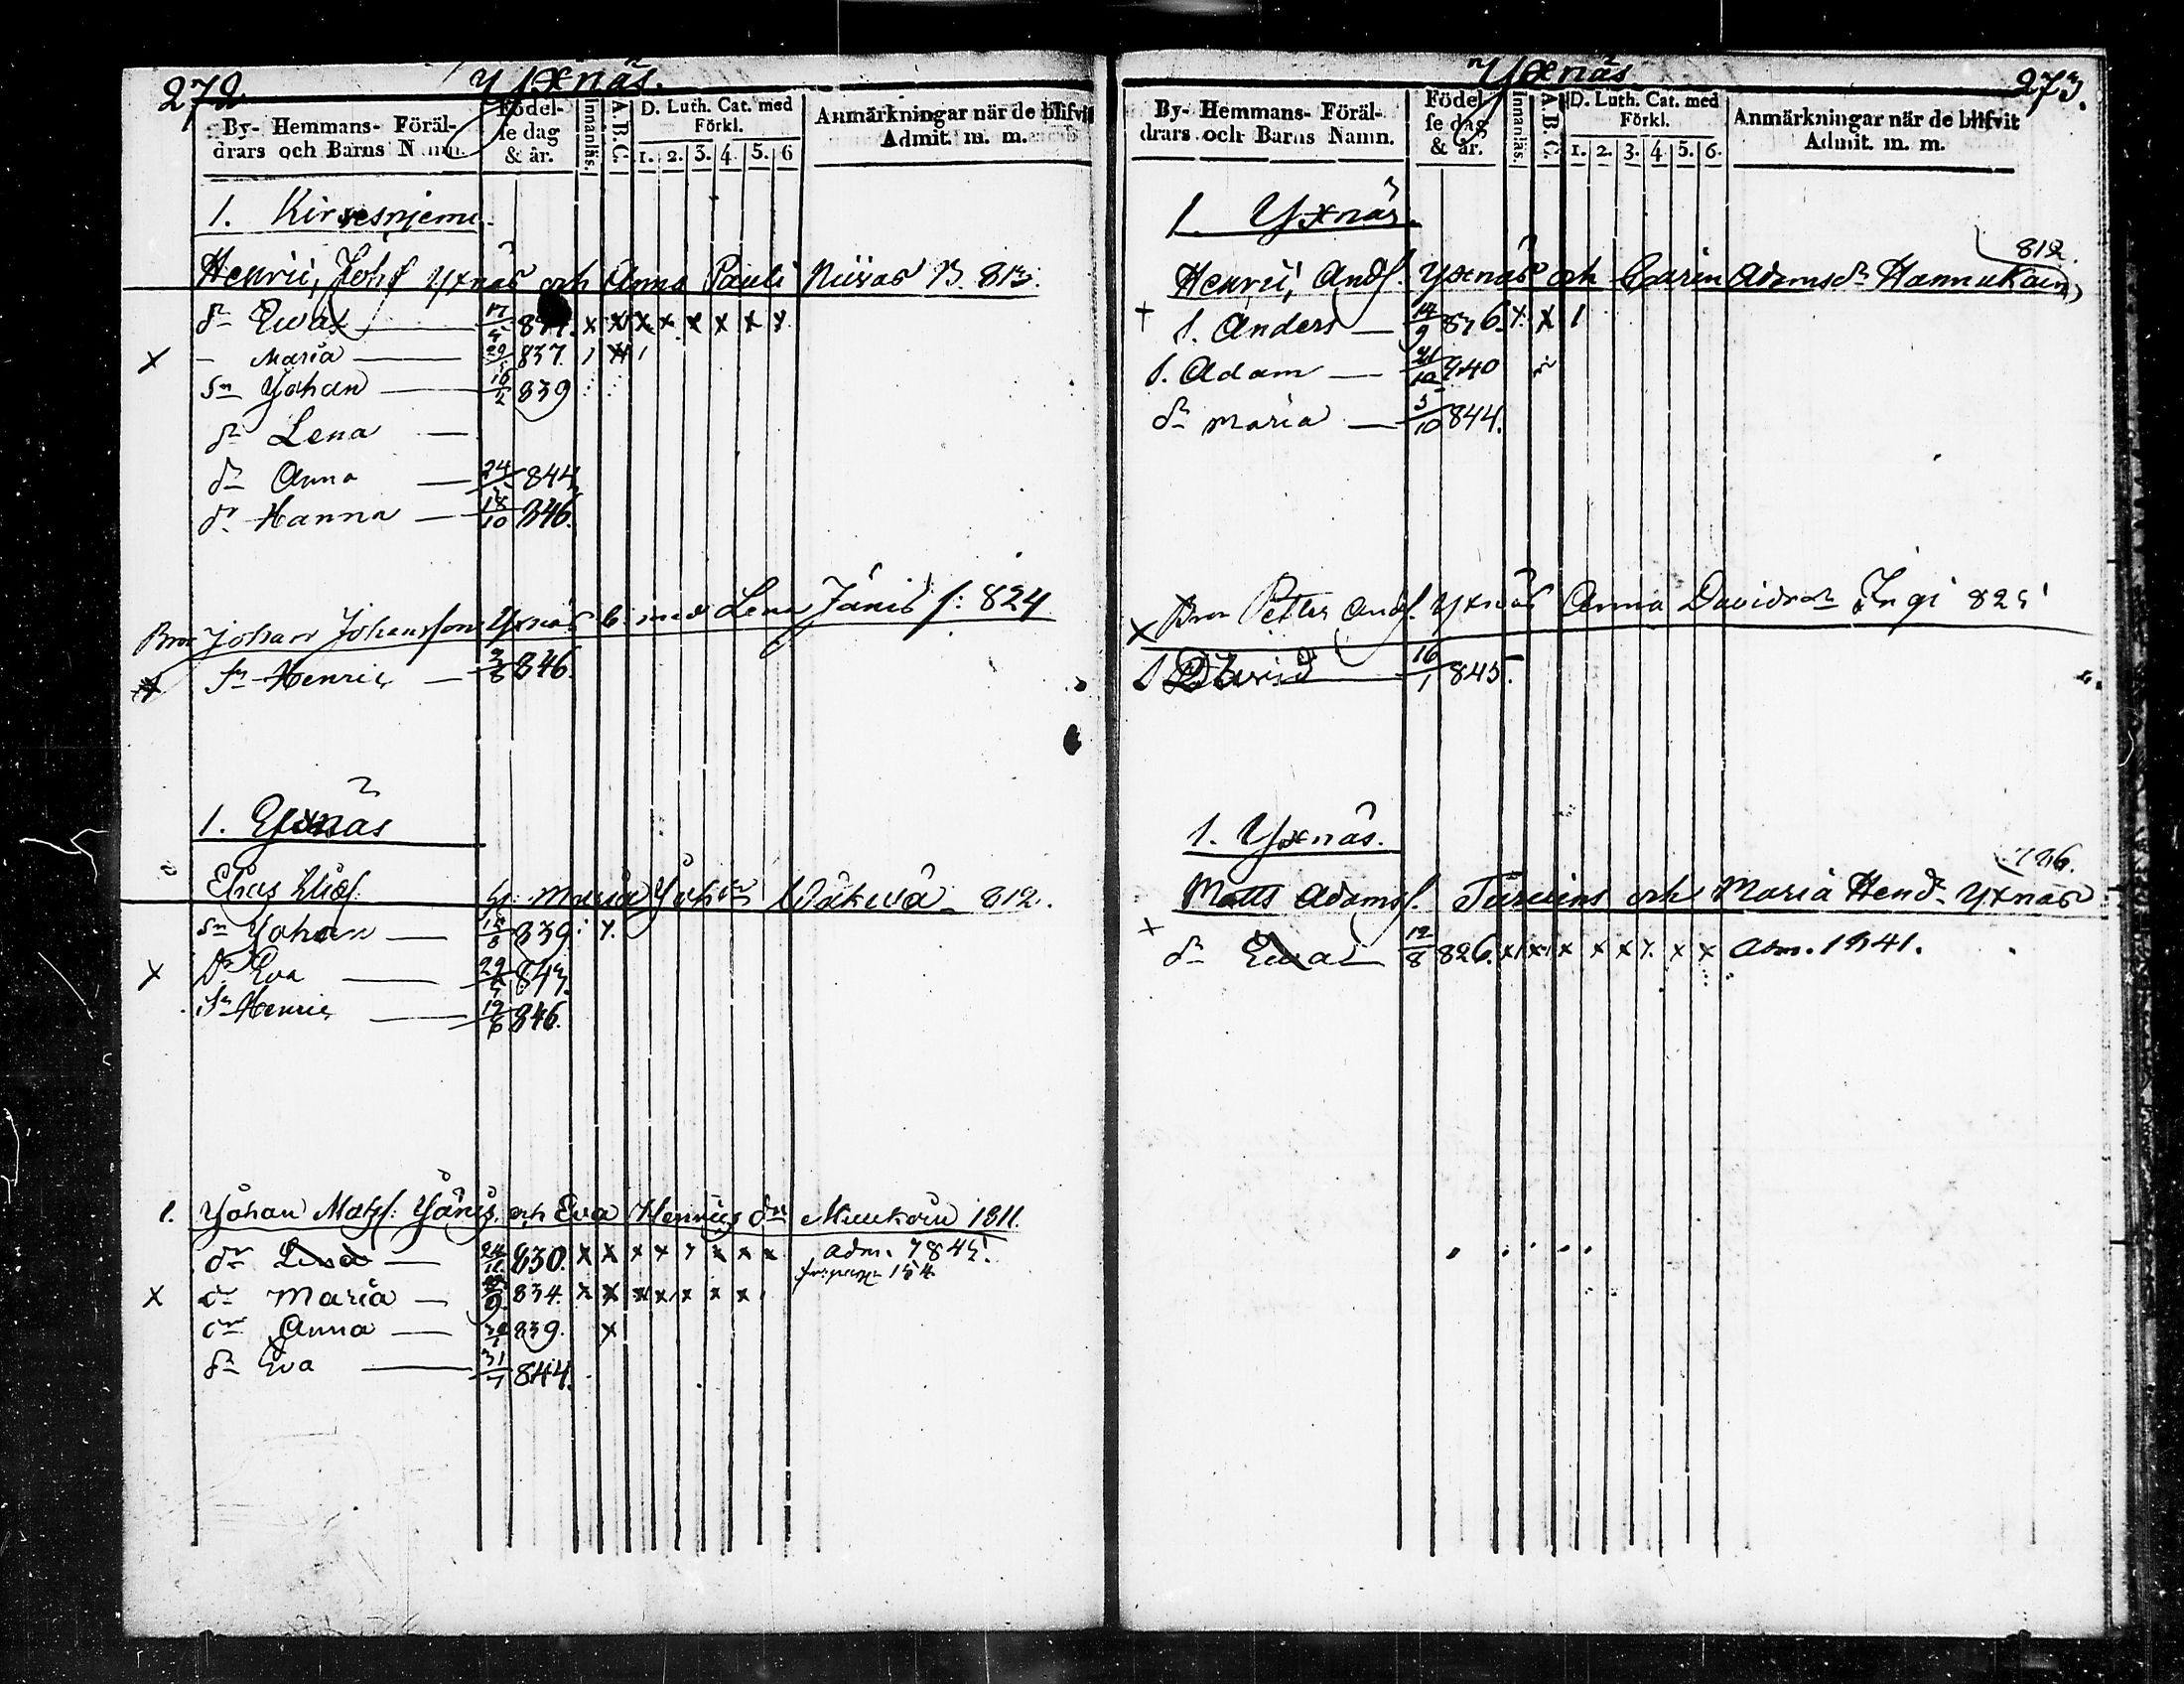 272 Yxnäs.
By- Hemmans- Föräl-
drars och Barns N
Födel-
se dag
& år.
Innanläs.
A.B.C.
D. Luth. Cat. med
Förkl.
1. 2. 3. 4. 5. 6
Anmärkningar när de blifvit
Admit. m. m.
1. Kirvesniemi
Henric Johsf Yxnäs och Anna Pauli 813.
dr Eva 17/5 x x x x x x x x
x - Maria 837. 1
Sn Johan 16/2 839
dr Lena
dr Anna 24 844
dr Hanna 18/10 846.
Bror Johan Johansson Yxnäs med Lena Jänis f: 824
Sn Henric 846.
1. Yxnäs
Elias
Maria Johsdr 812.
Sn Johan 12/8 839
x dr Eva 29 843.
Sn Henric 19 846.
1. Johan Matsf: Jänis och Eva Henrics dr Muukoin 1811.
dr 830. x x x x x x x x adm. 1845.
x dr Maria 834. x x x x x x x
dr Anna 839. x
dr Eva 31/7 844.
Yxnäs 273.
By- Hemmans- Föräl-
drars och Barns Namn.
Födel
se dag
& år.
Innanläs.
A.B.C.
D. Luth. Cat. med
Förkl.
1. 2. 3. 4. 5. 6.
Anmärkningar när de blifvit
Admit. m. m.
1. Yxnäs.
812.
Henric Andf. Yxnäs och Carin Adamsdr Hannukain
+ S. Anders 14/9 836. x x 1
S. Adam 21/10 840
dr Maria 5/10 844.
x Bror Petter Andf. Yxnäs Anna Davidsdr Ingi 825
S David 16/1 845.
1. Yxnäs.
786.
Matts Adamsf. och Maria Hendr Yxnäs
+ dr Eva 12/8 826. x x x x x x x x adm. 1841.